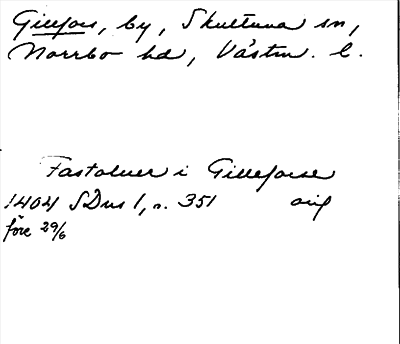 Gillfors, by, Skultuna sn,
Norrbo hd, Västm. l.
Fastoluer i Gilleforse
1404 SDns 1, s. 351 orig
före 29/6